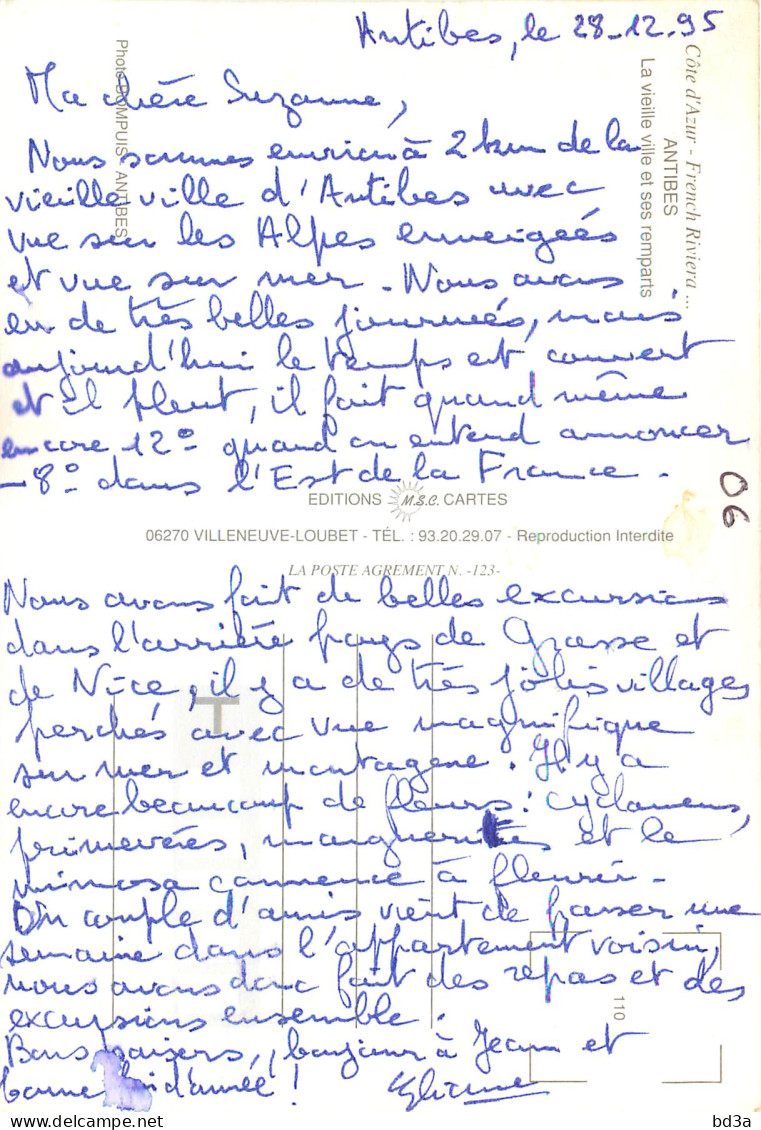 Antibes, le 28-12.95
Ma chère Suzanne,
Nous sommes environ à 2 km de la
vieille ville d'Antibes avec
vue sur les Alpes enneigées
et vue sur mer. Nous avons
eu de très belles journées, mais
aujourd'hui le temps est couvert
et il pleut, il fait quand même
encore 12° quand on entend annoncer
-8° dans l'Est de la France.
Côte d'Azur - French Riviera ...
ANTIBES
La vieille ville et ses remparts
Photo BOMPUIS - ANTIBES
06
EDITIONS M.S.C. CARTES
06270 VILLENEUVE-LOUBET - TÉL. : 93.20.29.07 - Reproduction Interdite
LA POSTE AGREMENT N. -123-
Nous avons fait de belles excursions
dans l'arrière pays de Grasse et
de Nice, il y a de très jolis villages
perchés avec vue magnifique
sur mer et montagne. Il y a
encore beaucoup de fleurs : cyclamens,
primevères, marguerites et le
mimosa commence à fleurir.
Un couple d'amis vient de passer une
semaine dans l'appartement voisin,
nous avons donc fait des repas et des
excursions ensemble.
Bons baisers, bonjour à Jean et
bonne fin d'année !
110
bd3a